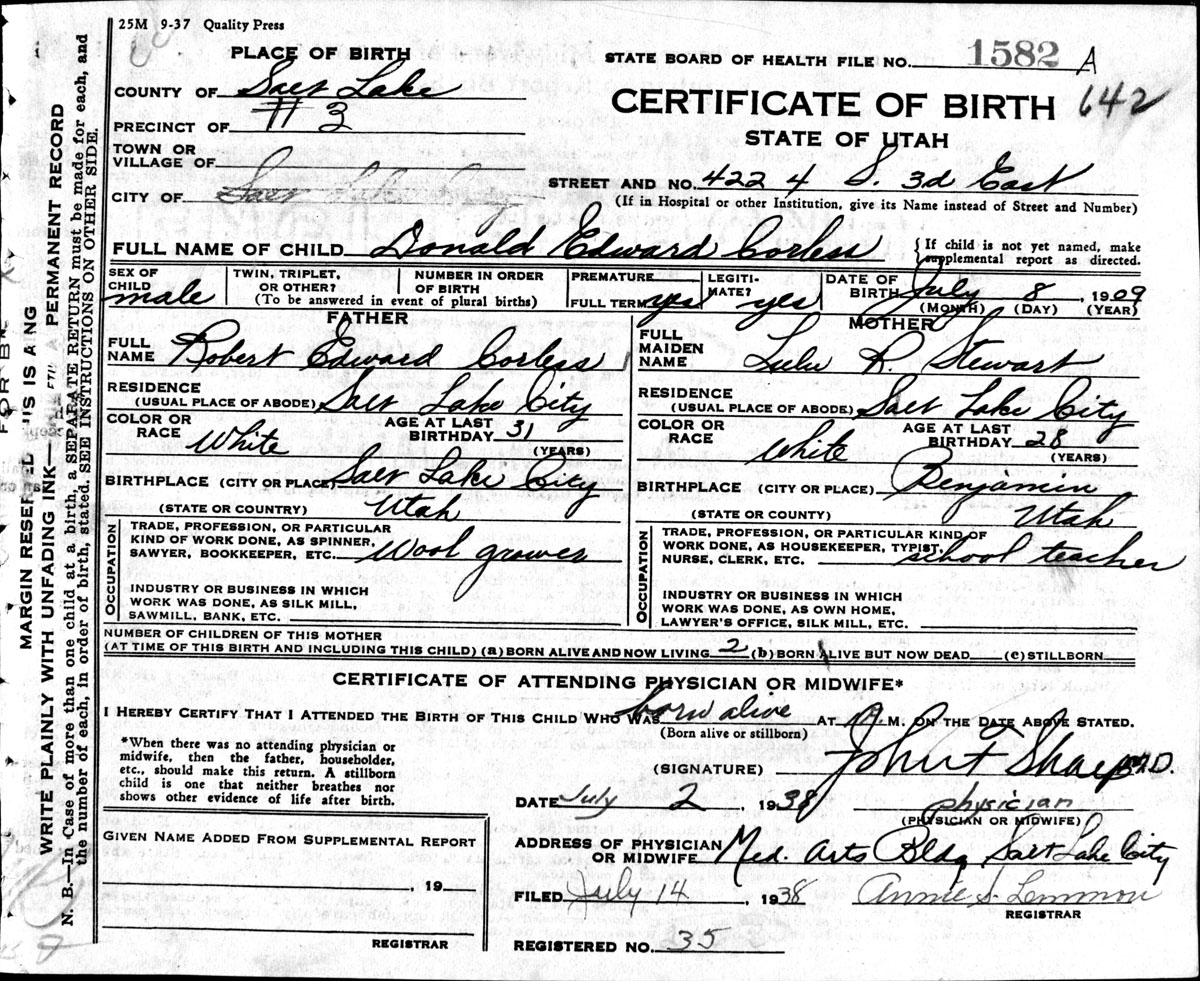 25M 9-37 Quality Press
PLACE OF BIRTH
STATE BOARD OF HEALTH FILE NO. 1582 A
COUNTY OF Salt Lake
CERTIFICATE OF BIRTH 642
PRECINCT OF # 3
STATE OF UTAH
TOWN OR
VILLAGE OF
STREET AND NO. 4224 S. 3d East
CITY OF Salt Lake City
(If in Hospital or other Institution, give its Name instead of Street and Number)
FULL NAME OF CHILD Donald Edward Corless
{ If child is not yet named, make
supplemental report as directed.
SEX OF
CHILD male
TWIN, TRIPLET,
OR OTHER?
NUMBER IN ORDER
OF BIRTH
(To be answered in event of plural births)
PREMATURE
FULL TERM yes
LEGITI-
MATE? yes
DATE OF
BIRTH July 8, 1909
(MONTH) (DAY) (YEAR)
FATHER
FULL
NAME Robert Edward Corless
RESIDENCE
(USUAL PLACE OF ABODE) Salt Lake City
COLOR OR
RACE White
AGE AT LAST
BIRTHDAY 31
(YEARS)
BIRTHPLACE (CITY OR PLACE) Salt Lake City
(STATE OR COUNTRY) Utah
OCCUPATION
TRADE, PROFESSION, OR PARTICULAR
KIND OF WORK DONE, AS SPINNER,
SAWYER, BOOKKEEPER, ETC. Wool grower
INDUSTRY OR BUSINESS IN WHICH
WORK WAS DONE, AS SILK MILL,
SAWMILL, BANK, ETC.
MOTHER
FULL
MAIDEN
NAME Lulu R. Stewart
RESIDENCE
(USUAL PLACE OF ABODE) Salt Lake City
COLOR OR
RACE White
AGE AT LAST
BIRTHDAY 28
(YEARS)
BIRTHPLACE (CITY OR PLACE) Benjamin
(STATE OR COUNTY) Utah
OCCUPATION
TRADE, PROFESSION, OR PARTICULAR KIND OF
WORK DONE, AS HOUSEKEEPER, TYPIST,
NURSE, CLERK, ETC. school teacher
INDUSTRY OR BUSINESS IN WHICH
WORK WAS DONE, AS OWN HOME,
LAWYER'S OFFICE, SILK MILL, ETC.
NUMBER OF CHILDREN OF THIS MOTHER
(AT TIME OF THIS BIRTH AND INCLUDING THIS CHILD) (a) BORN ALIVE AND NOW LIVING 2 (b) BORN ALIVE BUT NOW DEAD (c) STILLBORN
CERTIFICATE OF ATTENDING PHYSICIAN OR MIDWIFE*
I HEREBY CERTIFY THAT I ATTENDED THE BIRTH OF THIS CHILD WHO WAS born alive AT M. ON THE DATE ABOVE STATED.
(Born alive or stillborn)
*When there was no attending physician or
midwife, then the father, householder,
etc., should make this return. A stillborn
child is one that neither breathes nor
shows other evidence of life after birth.
(SIGNATURE) John F Sharp M.D.
DATE July 2, 1938
physician
(PHYSICIAN OR MIDWIFE)
ADDRESS OF PHYSICIAN
OR MIDWIFE Med. Arts Bldg Salt Lake City
GIVEN NAME ADDED FROM SUPPLEMENTAL REPORT
, 19
REGISTRAR
FILED July 14, 1938 Annie S. Lemmon
REGISTRAR
REGISTERED NO. 35
MARGIN RESER
WRITE PLAINLY WITH UNFADING INK— PERMANENT RECORD
N. B.—In Case of more than one child at a birth, a SEPARATE RETURN must be made for each, and
the number of each, in order of birth, stated. SEE INSTRUCTIONS ON OTHER SIDE.